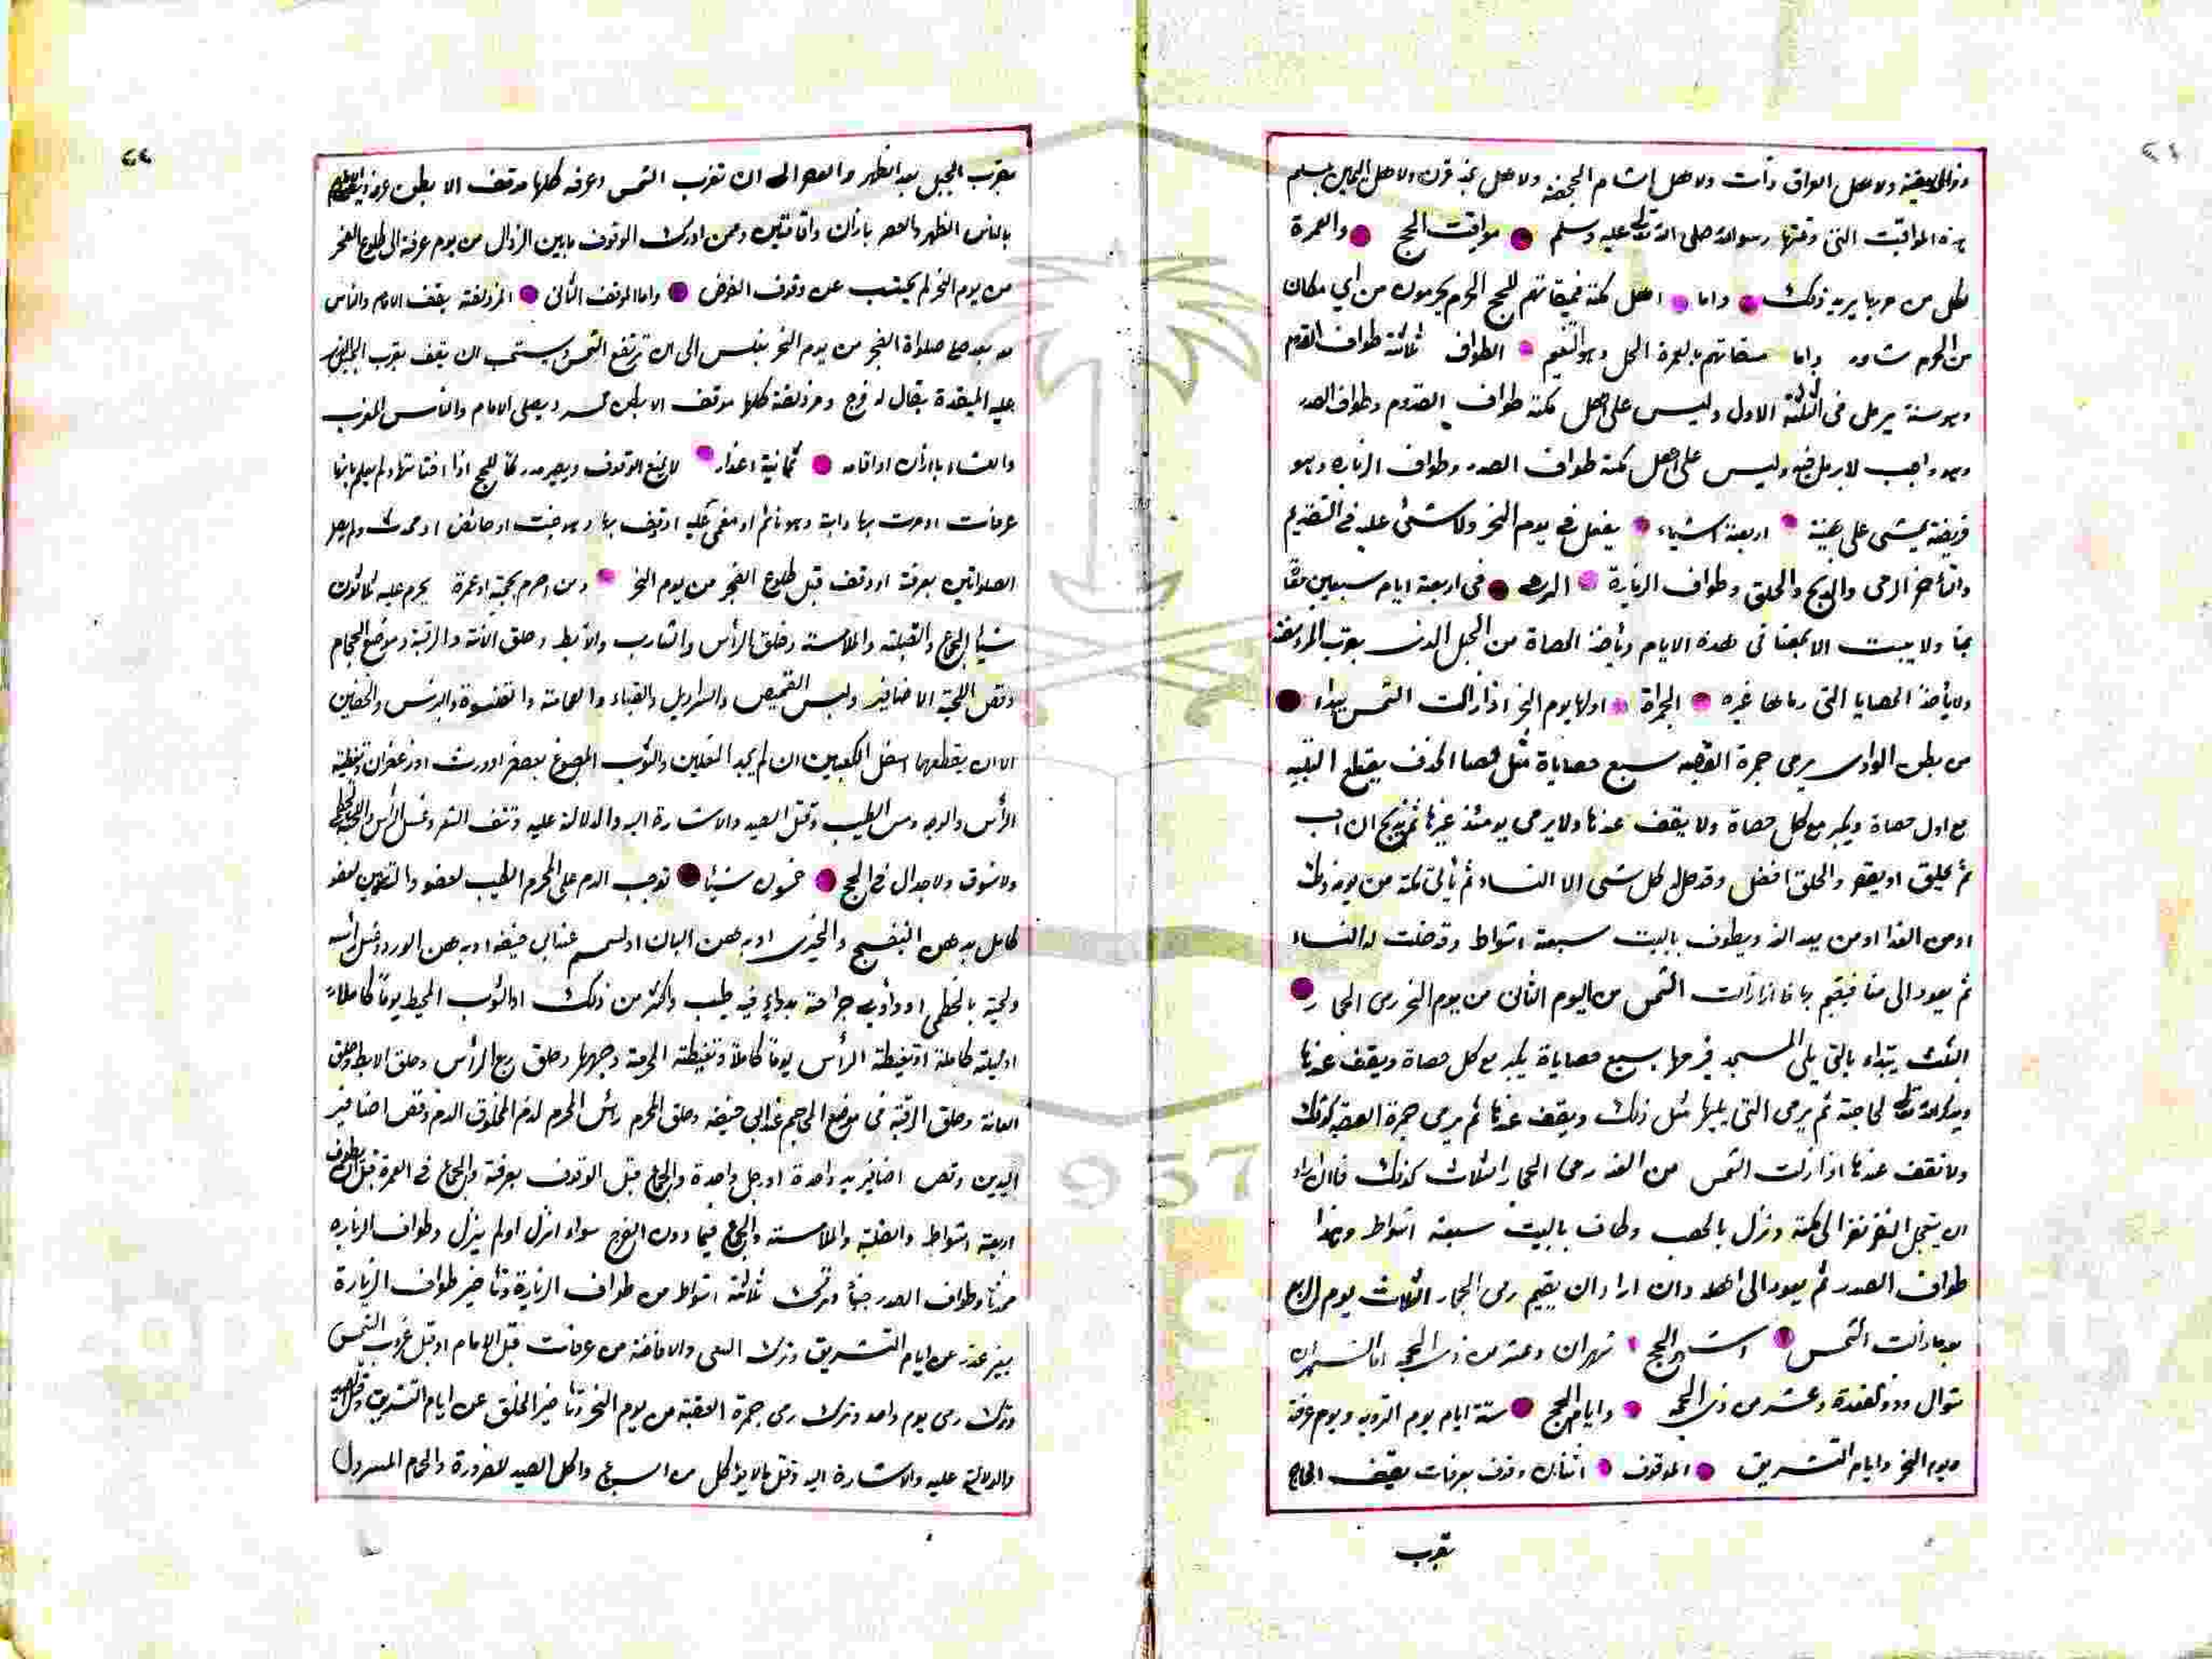 ذوالحليفة ولاهل العراق ذات ولاهل الشام الجحفة ولاهل نجد قرن ولاهل اليمن يلملم
هذه المواقيت التى وقتها رسول الله صلى الله تعالى عليه وسلم مواقيت الحج والعمرة
لكل من مر بها يريد ذلك واما اهل مكة فميقاتهم للحج الحرم يحرمون من اي مكان
من الحرم شاؤا واما ميقاتهم بالعمرة الحل وهو التنعيم الطواف ثلاثة طواف القدوم
وهو سنة يرمل فى الثلثة الاول وليس على اهل مكة طواف القدوم وطواف الصدر
وهو واجب لا يرمل فيه وليس على اهل مكة طواف الصدر وطواف الزيارة وهو
فريضة يمشى على هينة اربعة اشياء يفعل فى يوم النحر ولا شئ عليه فى التقديم
والتأخير الرمى والذبح والحلق وطواف الزيارة الرمى فى اربعة ايام سبعين
بمنا ولا يبيت الا بمنا فى هذه الايام ويأخذ الحصاة من الجبل الذى بقرب المزدلفة
ولا يأخذ الحصايا التى رماها غيره الجمرة اولها يوم النحر اذا زالت الشمس يبداء
من بطن الوادى يرمى جمرة العقبة سبع حصاياة مثل حصا الخذف يقطع التلبية
مع اول حصاة ويكبر مع كل حصاة ولا يقف عندها ولا يرمى يومئذ غيرها ثم يذبح ان احب
ثم يحلق او يقصر والحلق افضل وقد حل له كل شى الا النساء ثم يأتى مكة من يومه ذلك
او من الغد او من بعد الغد ويطوف بالبيت سبعة اشواط وقد حلت له النساء
ثم يعود الى منا فيقيم بها فاذا زالت الشمس من اليوم الثانى من يوم النحر رمى الجمار
الثلث يبتداء بالتى يلى المسجد فيرميها بسبع حصاياة يكبر مع كل حصاة ويقف عندها
ويدعوا الله تعالى لحاجته ثم يرمى التى يليها مثل ذلك ويقف عندها ثم يرمى جمرة العقبة كذلك
ولا يقف عندها اذا زالت الشمس من الغد رمى الجمار الثلاث كذلك فان اراد
ان يتعجل النفر نفر الى مكة ونزل بالمحصب وطاف بالبيت سبعة اشواط وهذا
طواف الصدر ثم يعود الى اهله وان اراد ان يقيم رمى الجمار الثلاث يوم الرابع
بعد ما زالت الشمس اشهر الحج شهران وعشر من ذى الحجة اما الشهران
شوال وذو القعدة وعشر من ذى الحجة وايام الحج ستة ايام يوم التروية ويوم عرفة
ويوم النحر وايام التشريق الموقوف اثنان وقوف بعرفات يقف الحاج
بقرب
٢٢
بقرب الجبل بعد الظهر والعصر الى ان تغرب الشمس وعرفه كلها موقف الا بطن عرنة
بالناس الظهر والعصر باذان واقامتين ومن ادرك الوقوف مابين الزوال من يوم عرفة الى طلوع الفجر
من يوم النحر لم يجتنب عن وقوف الفرض واما الموقف الثانى المزدلفة يقف الامام والناس
بعد صلواة الفجر من يوم النحر بغلس الى ان ترتفع الشمس ويستحب ان يقف بقرب الجبل الذى
عليه الميقدة يقال له قزح ومزدلفة كلها موقف الا بطن محسر ويصلى الامام والناس المغرب
والعشاء باذان واقامه ثمانية اعذار لا يمنع الوقوف ويصير مدركا للحج اذا ولم يعلم بانها
عرفات او مرت بها دابة وهو نائم او مغمى عليه او يقف بها وهو جنب او حائض او محدث ولم يصل
الصلواتين بعرفة او وقف قبل طلوع الفجر من يوم النحر ومن احرم بحجة او عمرة يحرم عليه ثلاثون
شيأ الجماع والقبلة والملامسة وحلق الرأس والشارب والابط وحلق العانة والرقبة وموضع الحجام
وقص اللحية الاضافير ولبس القميص والسراويل والقباء والعمامة والقلنسوة والبرنس والخفين
الا ان يقطعهما اسفل الكعبين ان لم يجد النعلين والثوب المصبوغ بعصفر او ورث او زعفران وتغطية
الرأس والوجه ومس الطيب وقتل الصيد والاشارة اليه والدلالة عليه ونتف الشعر وغسل الرأس واللحية
ولا فسوق ولا جدال فى الحج خمسون شيأ توجب الدم على المحرم الطيب لعضو والتدهين لعضو
كامل بدهن البنفسج والخيرى او بدهن البان او لسم عند ابى حنيفه او بدهن الورد وغسل رأسه
ولحيته بالخطمى او داوى جراحة بدواء فيه طيب واكثر من ذلك او الثوب المخيط يوما كاملا
او ليلة كاملة او تغطية الرأس يوما كاملا وتغطية المحرمة وجهها وحلق ربع الرأس وحلق الابط وحلق
العانة وحلق الرقبة فى موضع المحاجم عند ابى حنيفه وحلق المحرم رأس المحرم لدم المحلوق الدم وقص اضافير
اليدين وقص اضافير يد واحدة او رجل واحدة والجماع قبل الوقوف بعرفة والجماع فى العمرة قبل ان يطوف
اربعة اشواط والقبلة والملامسة والجماع فيما دون الفرج سواء انزل او لم ينزل وطواف الزيارة
محدثا وطواف الصدر جنبا وترك ثلاثة اشواط من طواف الزيارة وتأخير طواف الزيارة
بغير عذر عن ايام التشريق وترك السعى والافاضة من عرفات قبل الامام او قبل غروب الشمس
وترك رمى يوم واحد وترك رمى جمرة العقبة من يوم النحر وتأخير الحلق عن ايام التشريق وقتل الصيد
والدلالة عليه والاشارة اليه وقتل ما لا يؤكل من السباع واكل الصيد للضرورة والحمام المسرول